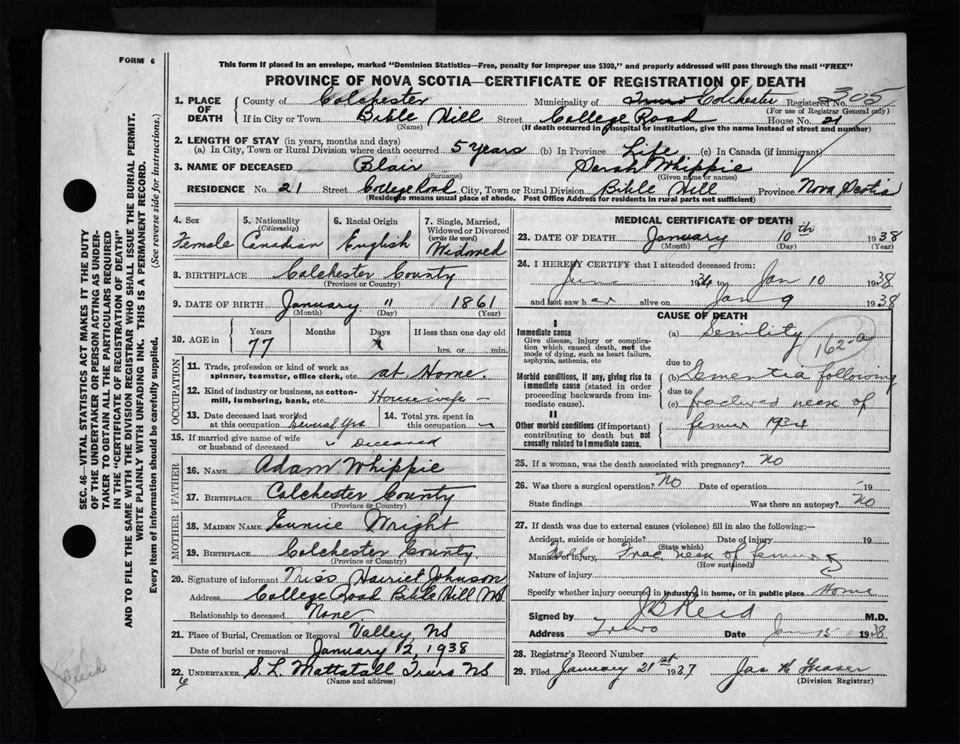 FORM 6
This form if placed in an envelope, marked "Dominion Statistics—Free, penalty for improper use $300," and properly addressed will pass through the mail "FREE"
PROVINCE OF NOVA SCOTIA—CERTIFICATE OF REGISTRATION OF DEATH
305
1. PLACE OF DEATH County of Colchester Municipality of Colchester Registered No.
(For use of Registrar General only)
If in City or Town Bible Hill Street College Road House No. 21
(Name) (If death occurred in hospital or institution, give the name instead of street and number)
2. LENGTH OF STAY (in years, months and days)
(a) In City, Town or Rural Division where death occurred 5 years (b) In Province Life (c) In Canada (if immigrant)
3. NAME OF DECEASED Blair Sarah Whippie
(Surname) (Given name or names)
RESIDENCE No. 21 Street College Road City, Town or Rural Division Bible Hill Province Nova Scotia
(Residence means usual place of abode. Post Office Address for residents in rural parts not sufficient)
4. Sex Female
5. Nationality (Citizenship) Canadian
6. Racial Origin English
7. Single, Married, Widowed or Divorced (write the word) Widowed
8. BIRTHPLACE Colchester County
(Province or County)
9. DATE OF BIRTH January " 1861
(Month) (Day) (Year)
10. AGE in Years 77 Months Days If less than one day old hrs. or min.
OCCUPATION
11. Trade, profession or kind of work as spinner, teamster, office clerk, etc. at Home.
12. Kind of industry or business, as cotton-mill, lumbering, bank, etc. Housewife —
13. Date deceased last worked at this occupation Several yrs
14. Total yrs. spent in this occupation
15. If married give name of wife or husband of deceased Deceased
FATHER
16. NAME Adam Whippie
17. BIRTHPLACE Colchester County
(Province or County)
MOTHER
18. MAIDEN NAME Eunice Wright
19. BIRTHPLACE Colchester County.
(Province or County)
20. Signature of informant Miss Harriet Johnson
Address College Road Bible Hill NS
Relationship to deceased None
21. Place of Burial, Cremation or Removal Valley NS
Date of burial or removal January 12, 1938
22. UNDERTAKER S. L. Mattatall Truro NS
(Name and address)
6
MEDICAL CERTIFICATE OF DEATH
23. DATE OF DEATH January 10th 1938
(Month) (Day) (Year)
24. I HEREBY CERTIFY that I attended deceased from:
June 1934 to Jan 10 1938
and last saw her alive on Jan 9 1938
CAUSE OF DEATH
I
Immediate cause
Give disease, injury or complication which caused death, not the mode of dying, such as heart failure, asphyxia, asthenia, etc
(a) Senility
162-a
due to
Morbid conditions, if any, giving rise to immediate cause (stated in order proceeding backwards from immediate cause).
(b) Dementia following
due to
(c) fractured neck of
II
Other morbid conditions (if important) contributing to death but not causally related to immediate cause.
femur 1934
25. If a woman, was the death associated with pregnancy? No
26. Was there a surgical operation? No Date of operation 19
State findings Was there an autopsy? No
27. If death was due to external causes (violence) fill in also the following:—
Accident, suicide or homicide? Date of injury 19
(State which)
Manner of injury, Fall Frac neck of femur
(How sustained)
Nature of injury
Specify whether injury occurred in industry, in home, or in public place Home
Signed by J B Reid M.D.
Address Truro Date Jan 15 1938
28. Registrar's Record Number
29. Filed January 21st 1937 Jas H Fraser
(Division Registrar)
SEC. 46—VITAL STATISTICS ACT MAKES IT THE DUTY
OF THE UNDERTAKER OR PERSON ACTING AS UNDER-
TAKER TO OBTAIN ALL THE PARTICULARS REQUIRED
IN THE "CERTIFICATE OF REGISTRATION OF DEATH"
AND TO FILE THE SAME WITH THE DIVISION REGISTRAR WHO SHALL ISSUE THE BURIAL PERMIT.
WRITE PLAINLY WITH UNFADING INK. THIS IS A PERMANENT RECORD.
Every item of information should be carefully supplied. (See reverse side for instructions.)